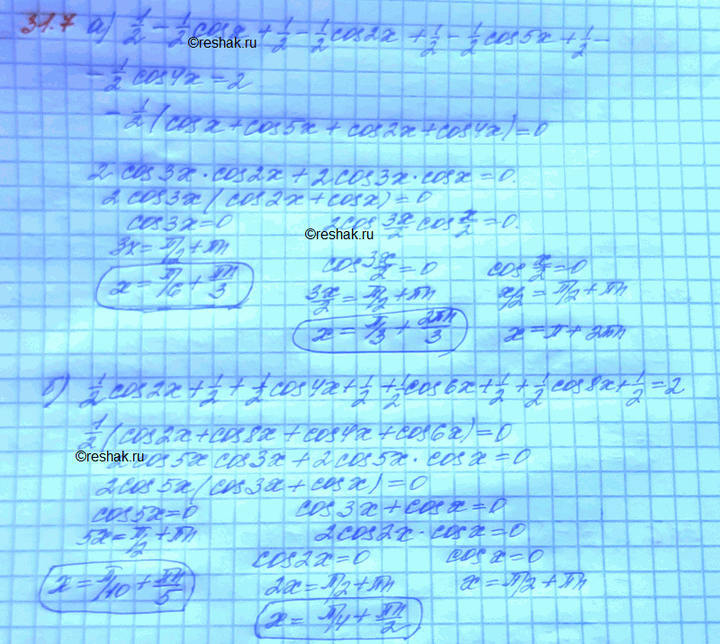 31.7 а) 1/2 - 1/2 cos x + 1/2 - 1/2 cos2x + 1/2 - 1/2 cos5x + 1/2 -
©reshak.ru
- 1/2 cos4x - 2
- 1/2 (cos x + cos5x + cos2x + cos4x) = 0
2 cos3x · cos2x + 2cos3x · cos x = 0.
2 cos3x (cos2x + cos x) = 0
cos3x = 0 2cos 3x/2 cos x/2 = 0.
©reshak.ru
3x = π/2 + πn cos 3x/2 = 0 cos x/2 = 0
x = π/6 + πn/3 3x/2 = π/2 + πn x/2 = π/2 + πn
x = π/3 + 2πn/3 x = π + 2πn
б) 1/2 cos2x + 1/2 + 1/2 cos4x + 1/2 + 1/2 cos6x + 1/2 + 1/2 cos8x + 1/2 = 2
1/2 (cos2x + cos8x + cos4x + cos6x) = 0
©reshak.ru
2cos5x cos3x + 2cos5x · cos x = 0
2cos5x (cos3x + cos x) = 0
cos5x = 0 cos3x + cos x = 0
5x = π/2 + πn 2cos2x · cos x = 0
cos2x = 0 cos x = 0
x = π/10 + πn/5 2x = π/2 + πn x = π/2 + πn
x = π/4 + πn/2